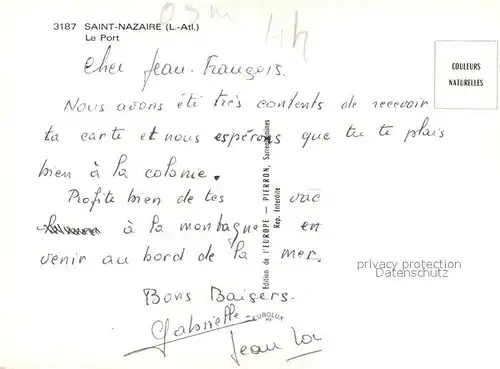 3187 SAINT-NAZAIRE (L.-Atl.)
Le Port
COULEURS
NATURELLES
Cher Jean-François.
Nous avons été très contents de recevoir
ta carte et nous espérons que tu te plais
bien à la colonie.
Profite bien de tes vac
à la montagne en
venir au bord de la mer.
Bons Baisers.
Gabrielle
Jean Lou
Edition de l'EUROPE — PIERRON, Sarreguemines
Rep. Interdite
EUROLUX
privacy protection
Datenschutz